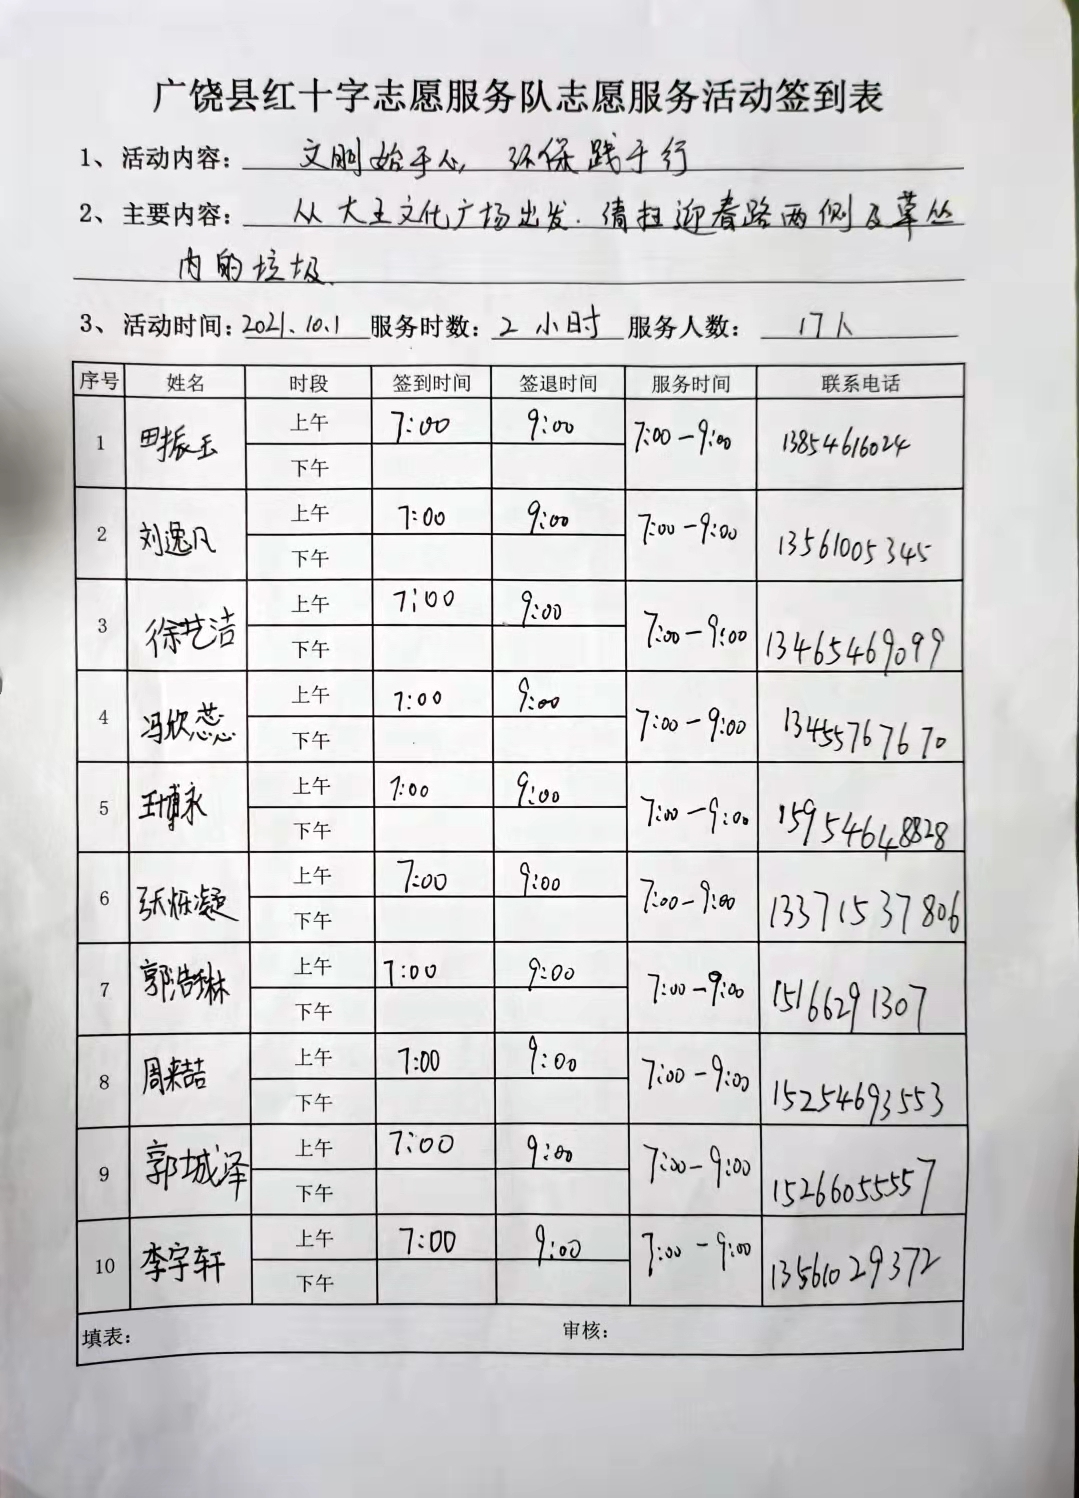 广饶县红十字志愿服务队志愿服务活动签到表
1、活动内容：文明始于心，环保践于行
2、主要内容：从大王文化广场出发.清扫迎春路两侧及草丛
内的垃圾.
3、活动时间：2021.10.1 服务时数：2小时 服务人数：17人
序号 姓名 时段 签到时间 签退时间 服务时间 联系电话
1 田振玉 上午 7:00 9:00 7:00-9:00 13854616024
下午
2 刘逸凡 上午 7:00 9:00 7:00-9:00 13561005345
下午
3 徐艺洁 上午 7:00 9:00 7:00-9:00 13465469099
下午
4 冯欣蕊 上午 7:00 9:00 7:00-9:00 13455767670
下午
5 王博永 上午 7:00 9:00 7:00-9:00 15954648828
下午
6 张烁凝 上午 7:00 9:00 7:00-9:00 13371537806
下午
7 郭浩琳 上午 7:00 9:00 7:00-9:00 15166291307
下午
8 周来喆 上午 7:00 9:00 7:00-9:00 15254693553
下午
9 郭城泽 上午 7:00 9:00 7:00-9:00 15266055557
下午
10 李宇轩 上午 7:00 9:00 7:00-9:00 13561029372
下午
填表： 审核：